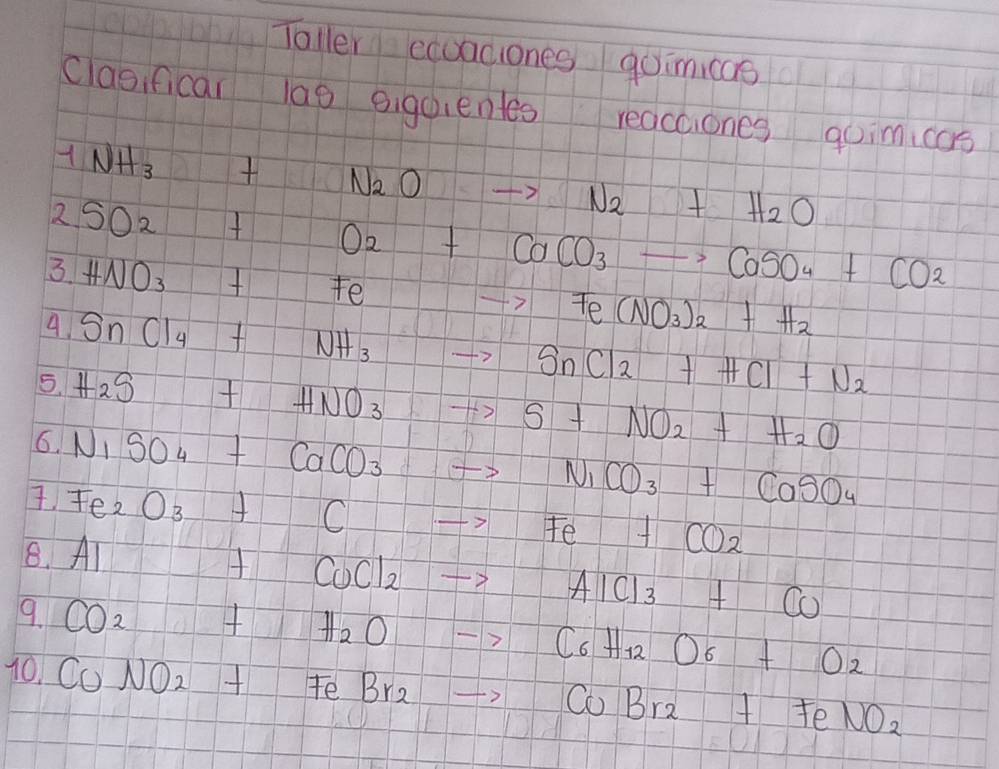 Taller ecuaciones químicas
Clasificar las siguientes reacciones químicas
1 NH3 + N2O → N2 + H2O
2. SO2 + O2 + CaCO3 → CaSO4 + CO2
3. HNO3 + Fe → Fe(NO3)2 + H2
4. SnCl4 + NH3 → SnCl2 + HCl + N2
5. H2S + HNO3 → S + NO2 + H2O
6. NiSO4 + CaCO3 → NiCO3 + CaSO4
7. Fe2O3 + C → Fe + CO2
8. Al + CuCl2 → AlCl3 + Cu
9. CO2 + H2O → C6H12O6 + O2
10. CuNO2 + FeBr2 → CuBr2 + FeNO2